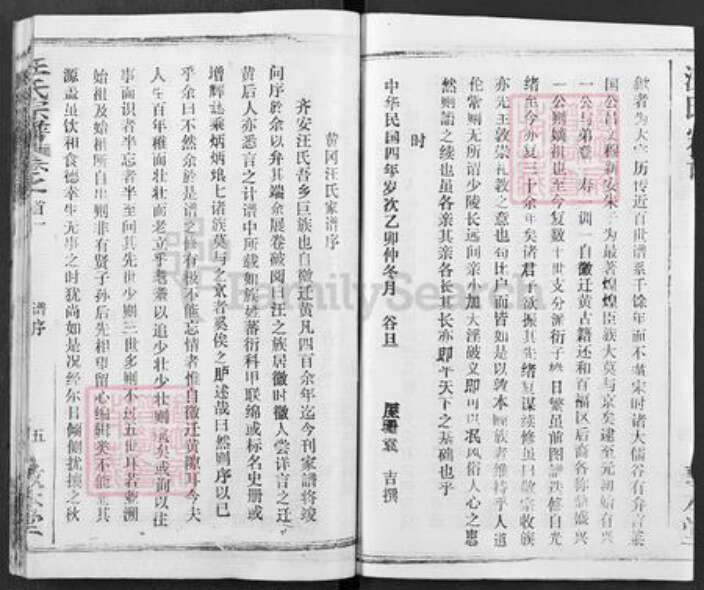 汪氏宗谱
献者为大宗历传近百世谱系千馀年而不紊宋时诸大儒谷有弁言
国公昌文穆新安朱子为最著煌煌臣族大莫与京矣建至元初始有兴
一公与弟兴寿训一自徽迁黄古籍还和百福区后裔各称
一公则黄祖也至今复数十世支分派衍子姓日繁虽前图谱迭修自光
绪至今亦复三十余年矣诸君欲振其先绪复谋续修虽曰敬宗收族
亦先王敦崇礼教之意也苟比户而皆如是以敦本睦族者维持乎人道
伦常则无所谓少陵长远间亲小加大淫破义即可以民风俗人心之患
然则谱之续也虽各亲其亲各长其长亦即平天下之基础也乎
时
中华民国四年岁次乙卯仲冬月 谷旦 屡册袁 吉撰
黄冈汪氏家谱序
齐安汪氏吾乡巨族也自徽迁黄凡四百余年迄今刊家谱将竣
问序於余以弁其端余展卷披阅夫汪之族居徽时徽人尝详言之迁
黄后人亦悉言之计谱中所载如族姓蕃衍科甲联绵或标名史册或
增辉志乘炳炳烺烺七诸族莫与之京者奚俟之胪述哉曰然则序以已
乎余曰不然余於是谱之修有极不能忘情者惟自徽迁黄隙耳今夫
人生百年稚而壮壮而老立乎耄耋以追少壮少壮则远矣或前以往
事而识者半忘者半至问其先世少则三世多则不过五世耳若溯
始祖及始祖所自出则非有贤子孙后先相望留心编辑类不能举其
源盖虽饮和食德幸生无事之时犹尚如是况经尔日倾侧扰攘之秋
汪氏宗谱 卷之首一 谱序 五 敦本堂
FamilySearch